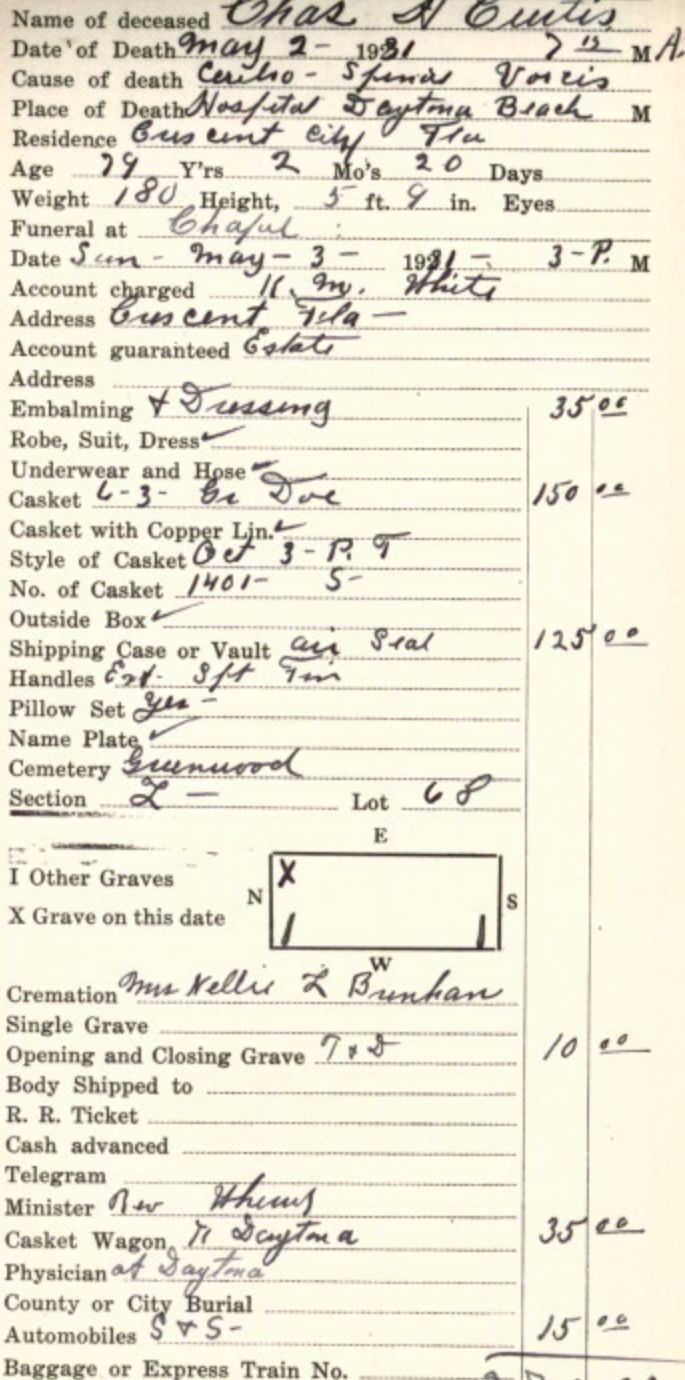 Name of deceased Chas H Curtis
Date of Death May 2 - 1931 7 15 M A.
Cause of death Cerebro - Spinal
Place of Death Hospital Daytona Beach M
Residence Crescent City Fla
Age 79 Y'rs 2 Mo's 20 Days
Weight 180 Height, 5 ft. 9 in. Eyes
Funeral at Chapel
Date Sun - May - 3 - 1931 - 3 - P. M
Account charged M. White
Address Crescent Fla -
Account guaranteed Estate
Address
Embalming & Dressing 35 00
Robe, Suit, Dress ✓
Underwear and Hose ✓
Casket 6-3- Gr Doe 150 00
Casket with Copper Lin. ✓
Style of Casket Oct 3 - P. T
No. of Casket 1401- S-
Outside Box ✓
Shipping Case or Vault air Seal 125 00
Handles Ext-
Pillow Set yes -
Name Plate ✓
Cemetery Greenwood
Section L - Lot 68
E
I Other Graves
N X S
X Grave on this date
W
Cremation Mrs Nellie L
Single Grave
Opening and Closing Grave T & D 10 00
Body Shipped to
R. R. Ticket
Cash advanced
Telegram
Minister Rev
Casket Wagon Daytona 35 00
Physician at Daytona
County or City Burial
Automobiles S & S - 15 00
Baggage or Express Train No.